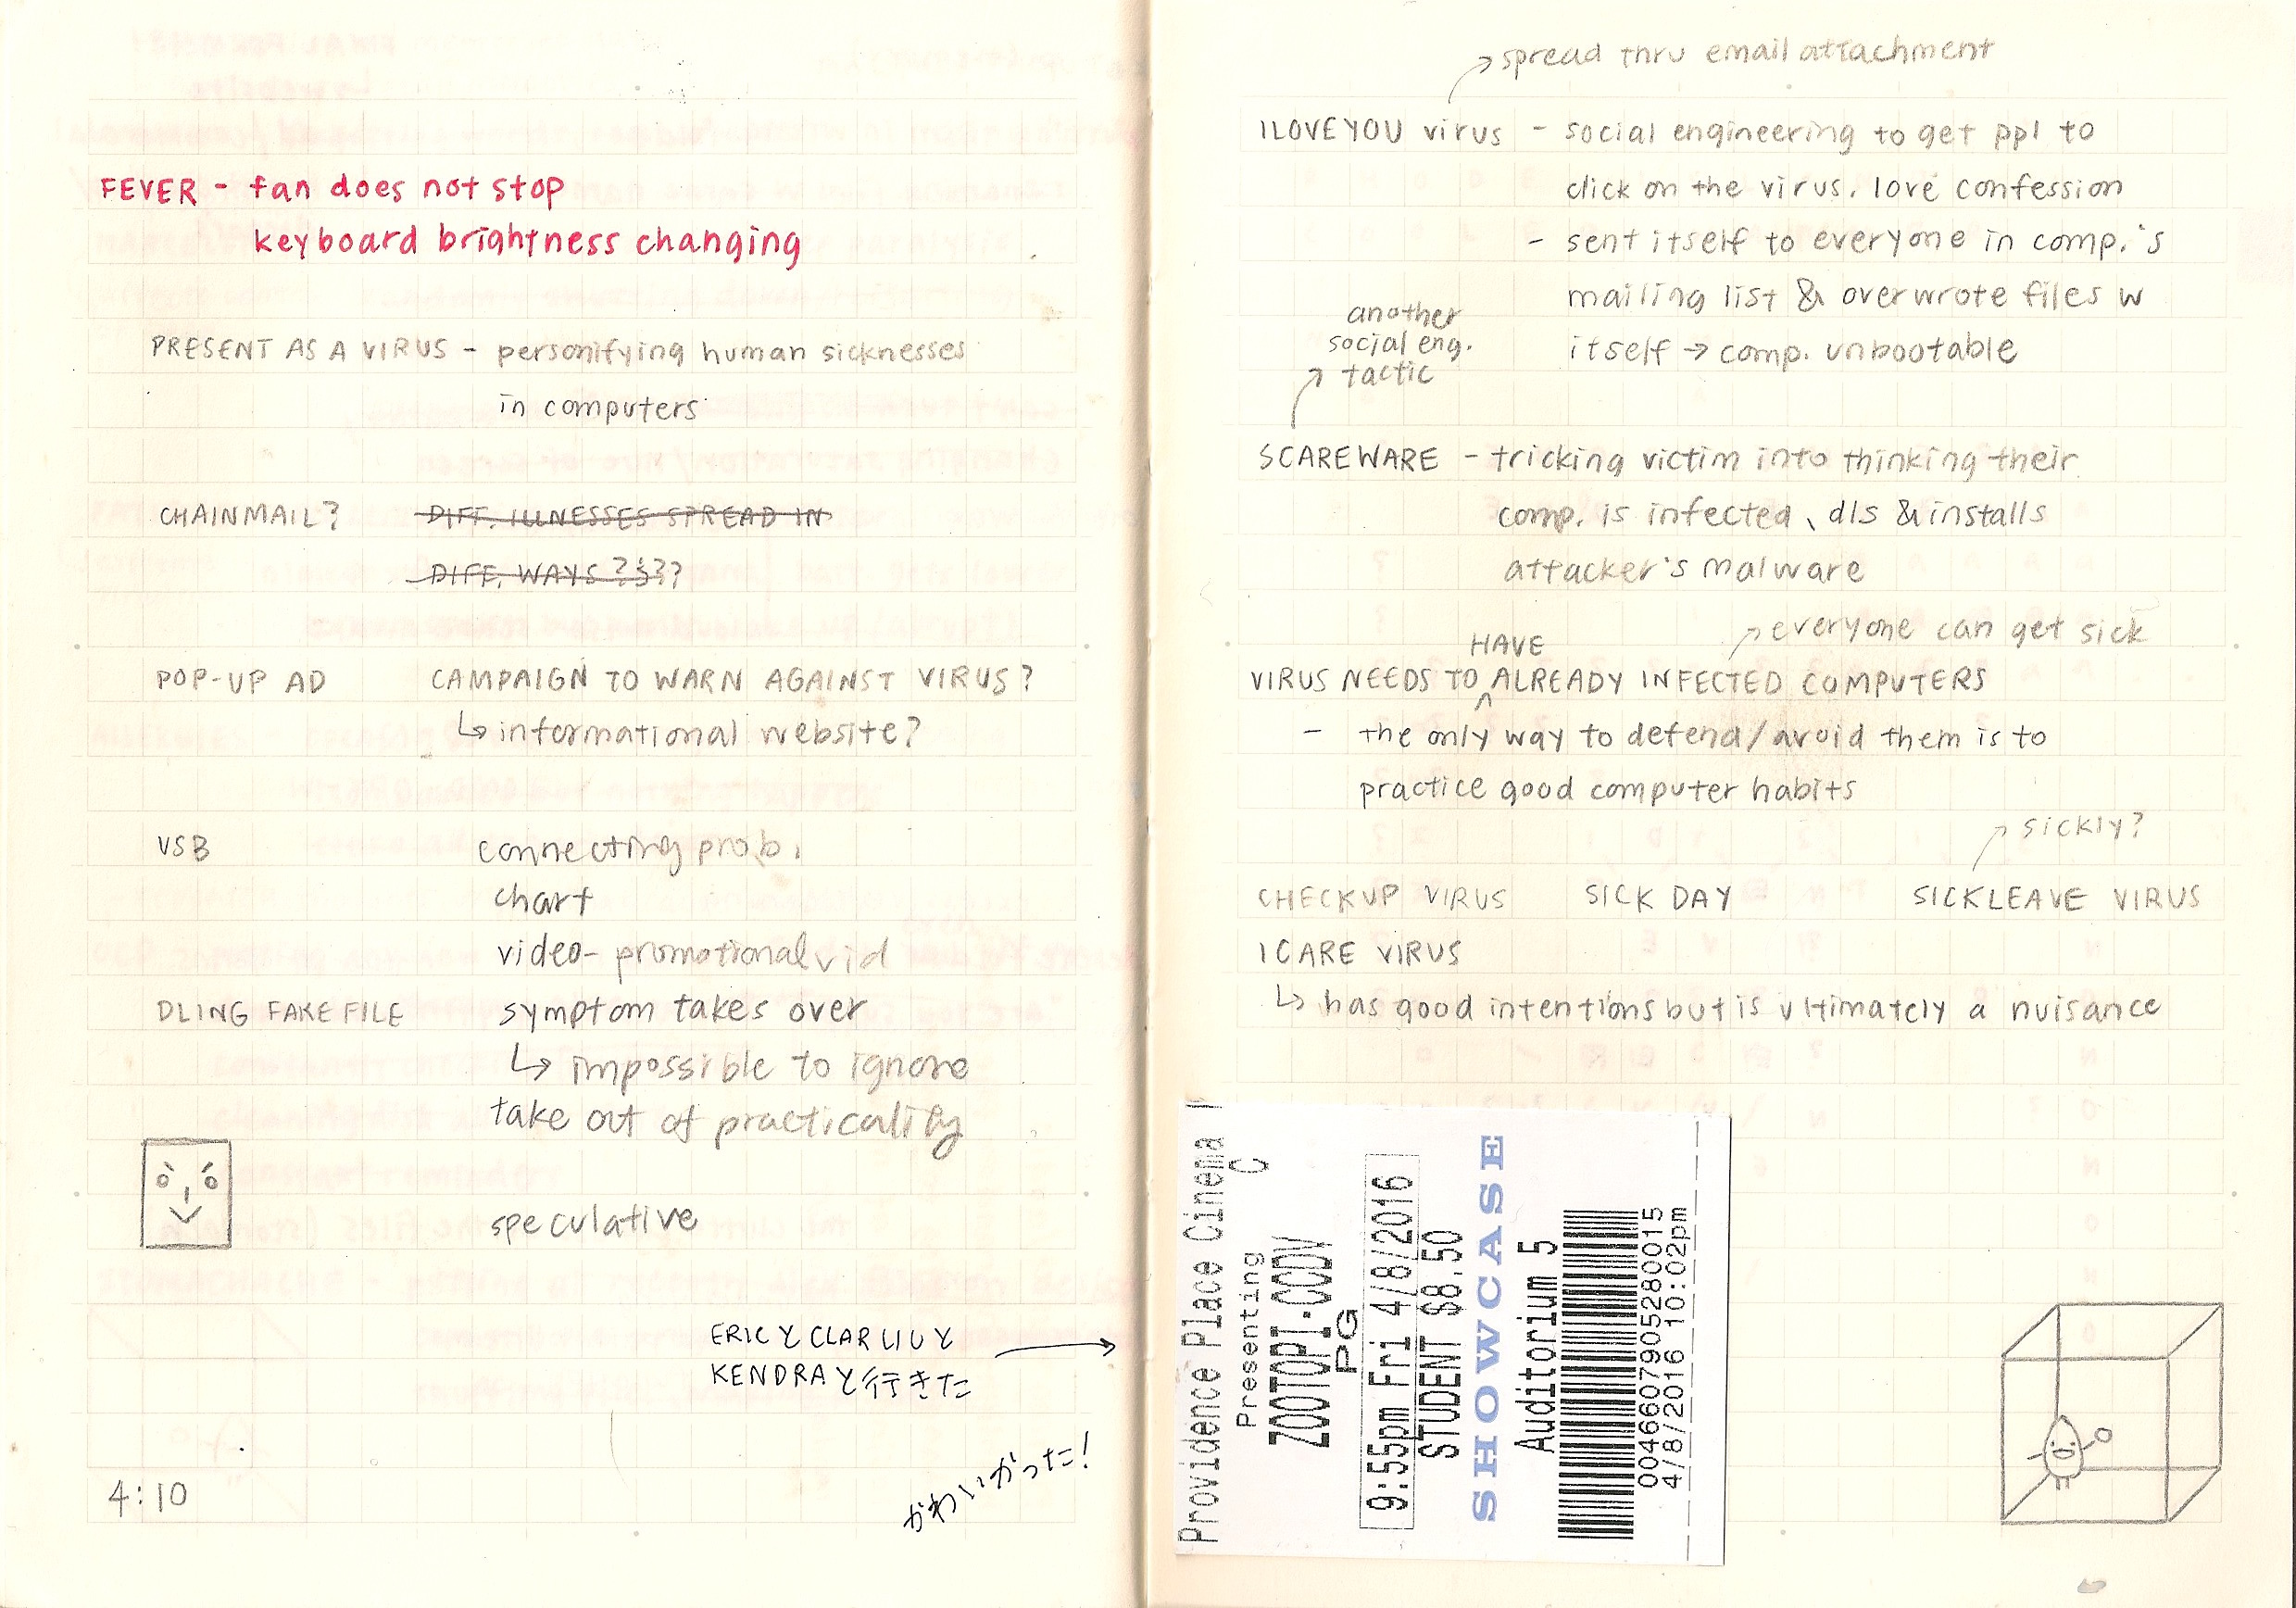 FEVER - fan does not stop
keyboard brightness changing
PRESENT AS A VIRUS - personifying human sicknesses
in computers
CHAINMAIL?
DIFF. ILLNESSES SPREAD IN
DIFF. WAYS ????
POP-UP AD
CAMPAIGN TO WARN AGAINST VIRUS?
↳ informational website?
USB
connecting prob.
chart
video- promotional vid
DLING FAKE FILE
symptom takes over
↳ impossible to ignore
take out of practicality
speculative
ERICと CLAR LIUと
KENDRAと行きた
かわいがった!
4:10
spread thru email attachment
ILOVEYOU virus - social engineering to get ppl to
click on the virus. love confession
- sent itself to everyone in comp.'s
mailing list & overwrote files w
itself → comp. unbootable
another
social eng.
tactic
SCAREWARE - tricking victim into thinking their
comp. is infected、dls & installs
attacker's malware
everyone can get sick
HAVE
VIRUS NEEDS TO ^ ALREADY INFECTED COMPUTERS
- the only way to defend/avoid them is to
practice good computer habits
sickly?
CHECKUP VIRUS SICK DAY SICKLEAVE VIRUS
I CARE VIRUS
↳ has good intentions but is ultimately a nuisance
Providence Place Cinema
C
Presenting
ZOOTOPI-CCDV
PG
9:55pm Fri 4/8/2016
STUDENT $8.50
SHOWCASE
Auditorium 5
00466079052280015
4/8/2016 10:02pm